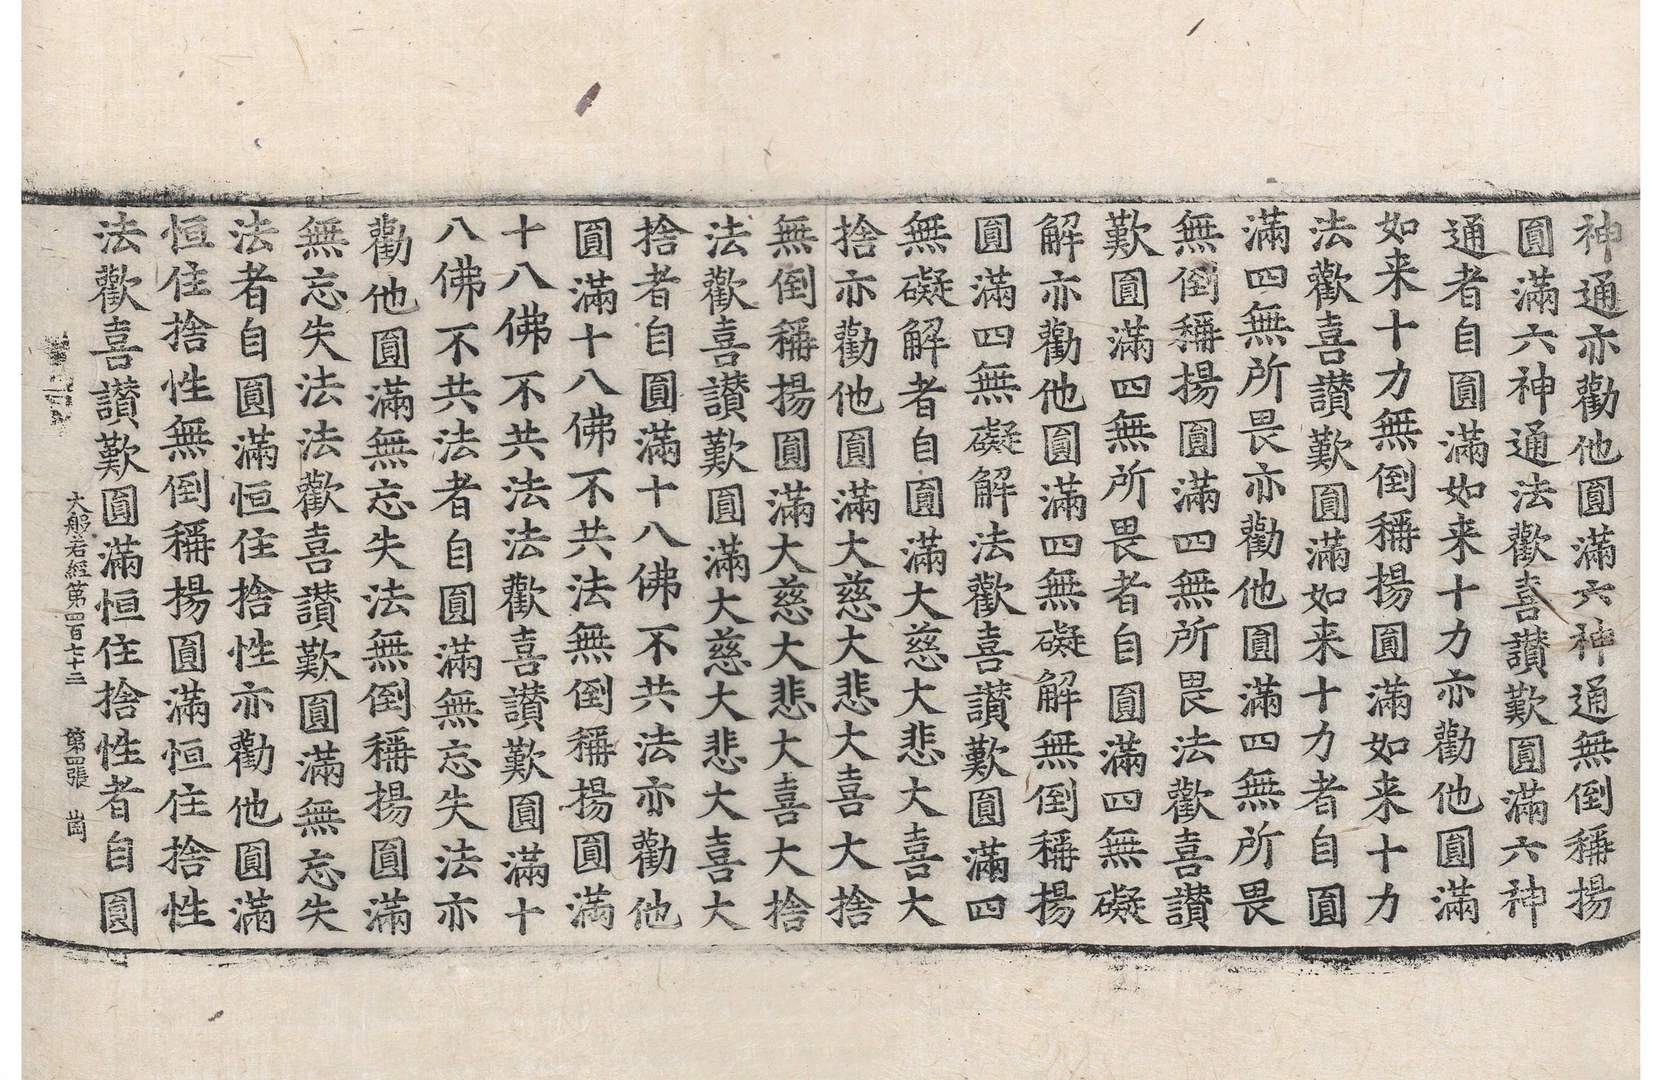 神通亦勸他圓滿六神通無倒稱揚
圓滿六神通法歡喜讃歎圓滿六神
通者自圓滿如来十力亦勸他圓滿
如来十力無倒稱揚圓滿如来十力
法歡喜讃歎圓滿如来十力者自圓
滿四無所畏亦勸他圓滿四無所畏
無倒稱揚圓滿四無所畏法歡喜讃
歎圓滿四無所畏者自圓滿四無礙
解亦勸他圓滿四無礙解無倒稱揚
圓滿四無礙解法歡喜讃歎圓滿四
無礙解者自圓滿大慈大悲大喜大
捨亦勸他圓滿大慈大悲大喜大捨
無倒稱揚圓滿大慈大悲大喜大捨
法歡喜讃歎圓滿大慈大悲大喜大
捨者自圓滿十八佛不共法亦勸他
圓滿十八佛不共法無倒稱揚圓滿
十八佛不共法法歡喜讃歎圓滿十
八佛不共法者自圓滿無忘失法亦
勸他圓滿無忘失法無倒稱揚圓滿
無忘失法法歡喜讃歎圓滿無忘失
法者自圓滿恒住捨性亦勸他圓滿
恒住捨性無倒稱揚圓滿恒住捨性
法歡喜讃歎圓滿恒住捨性者自圓
大般若經第四百七十二 第四張 崗